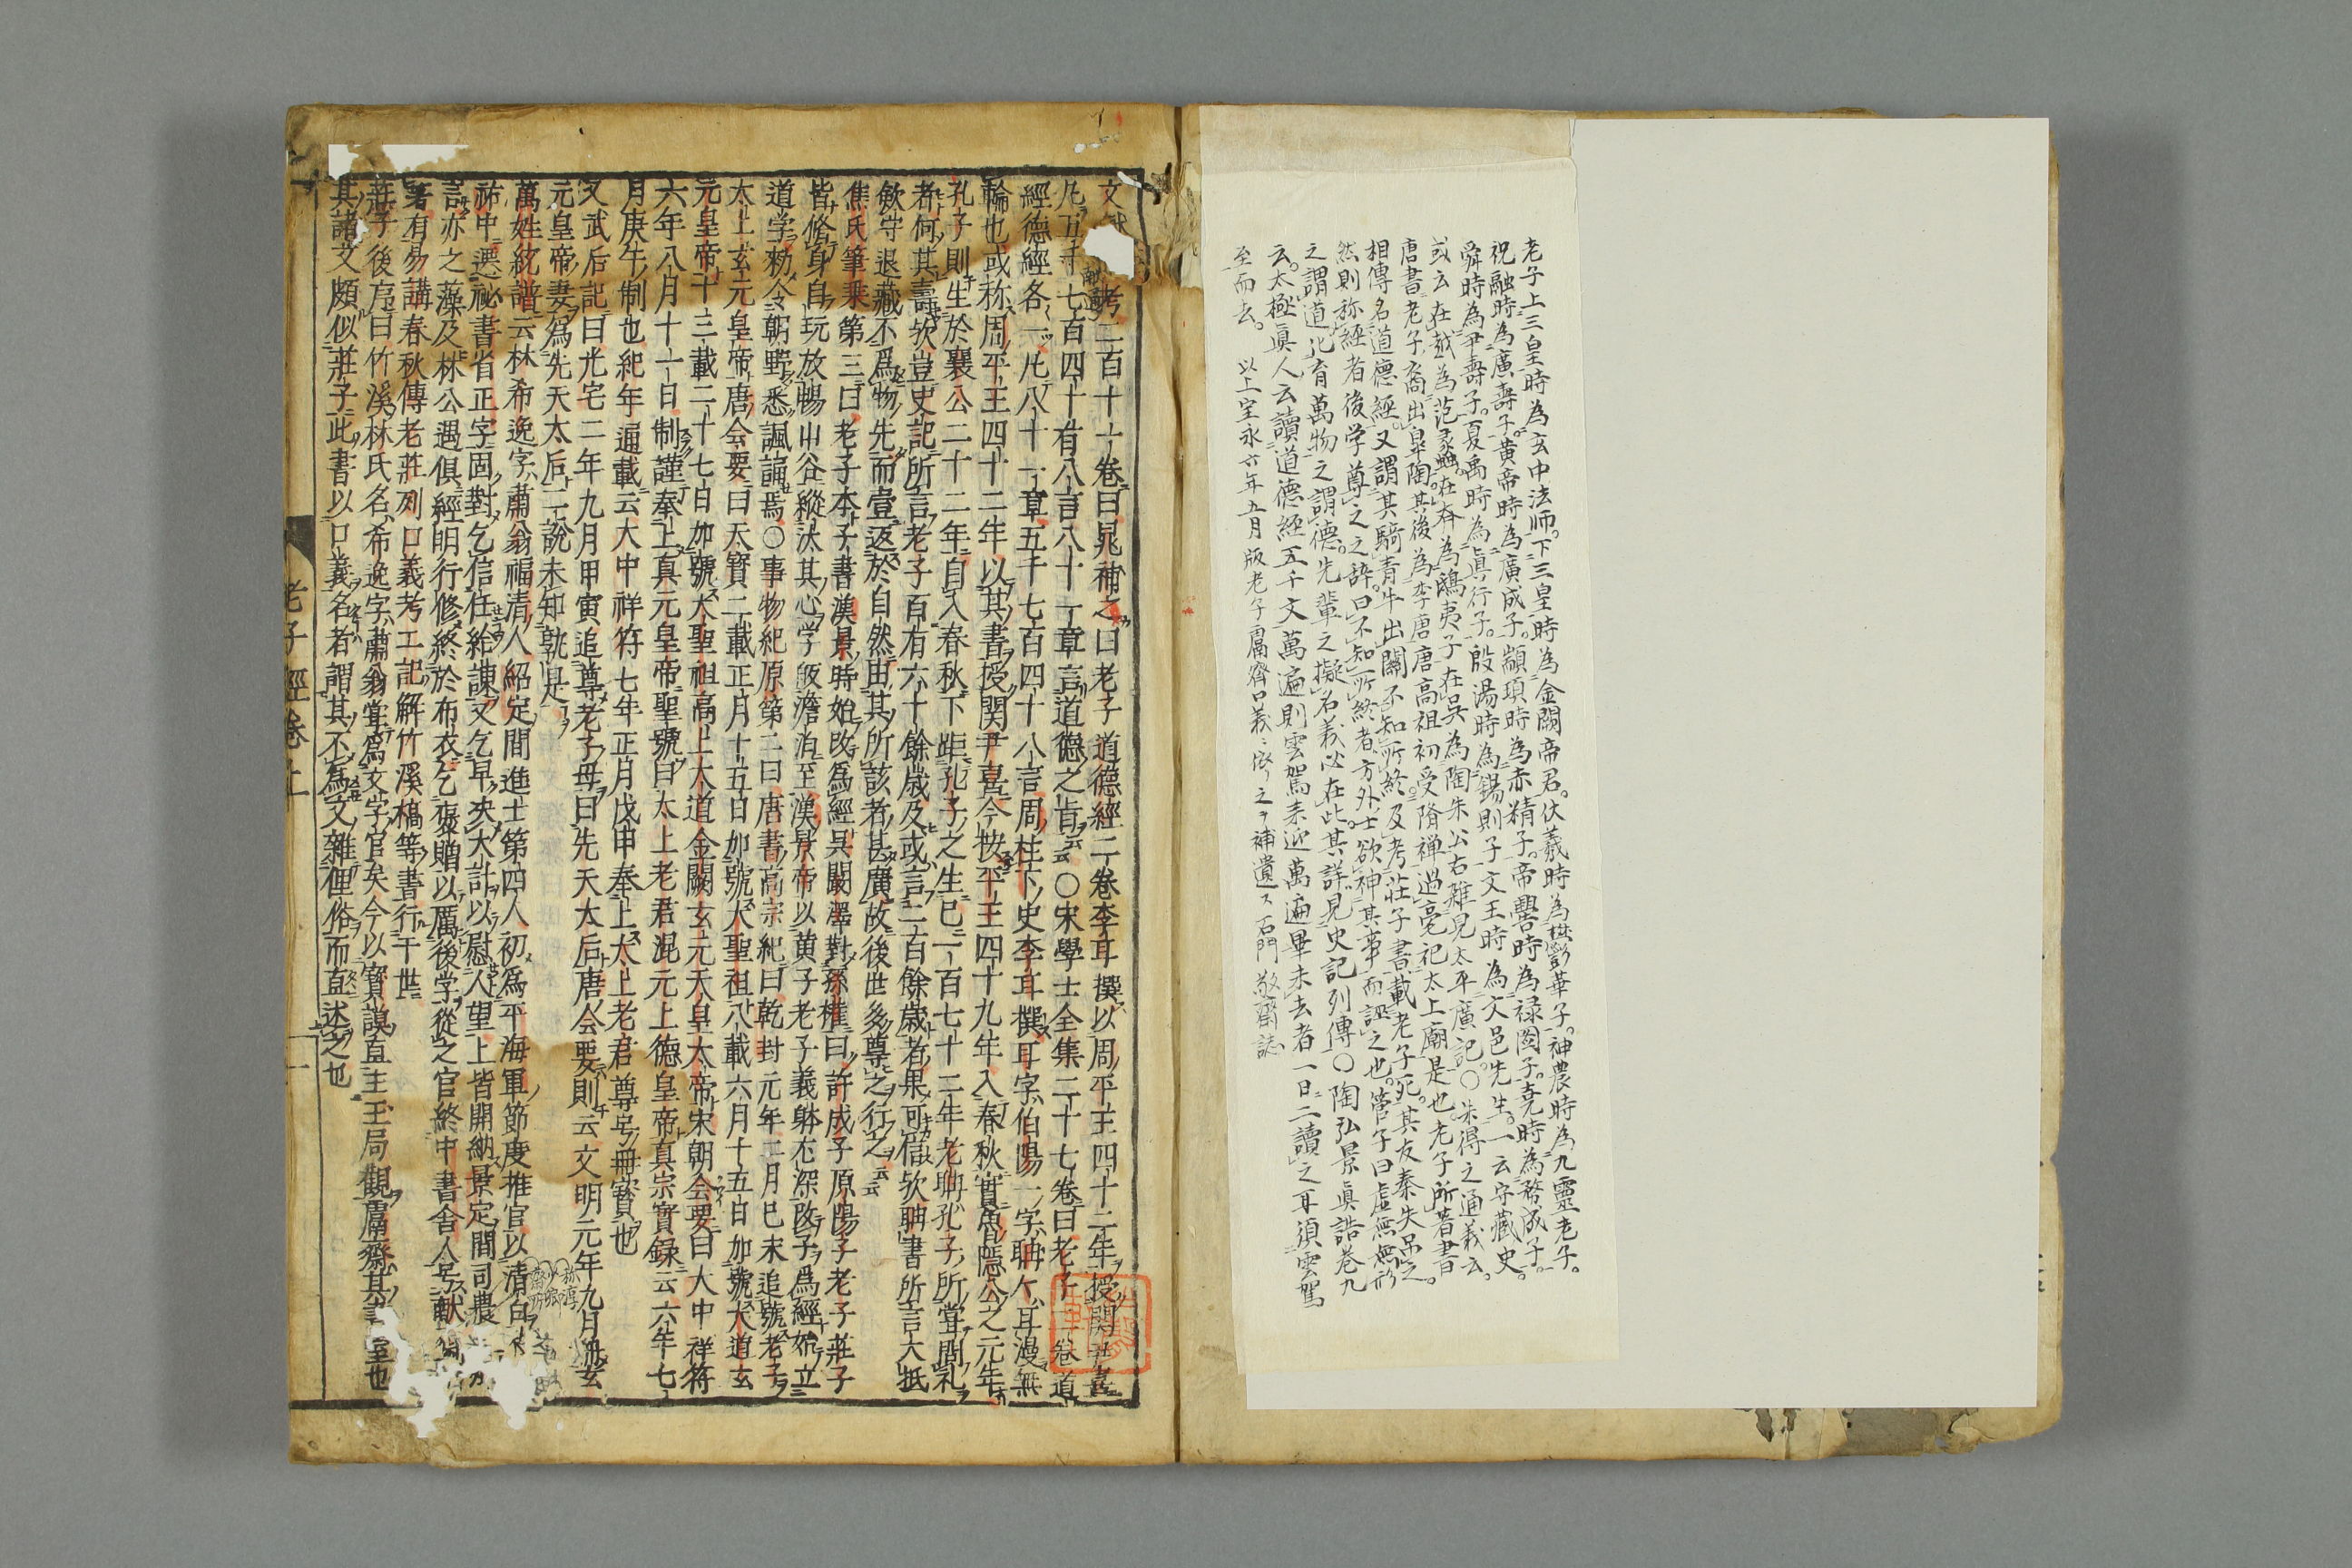 老子上三皇時為玄中法師。下三皇時為金闕帝君。伏羲時為欝華子。神農時為九靈老子。
祝融時為廣壽子。黄帝時為廣成子。顓頊時為赤精子。帝嚳時為禄圖子。堯時為務成子。
舜時為尹壽子。夏禹時為眞行子。殷湯時為錫則子文王時為文邑先生。一云守藏史。
或云在越為范蠡。在齊為鴟夷子在吳為陶朱公右雜見太平廣記。〇朱得之通義云。
唐書老子裔出皐陶其後為李唐唐高祖初受隋禅過亳祀太上廟是也。老子所著書
相傳名道德經。又謂其騎青牛出關不知所終。及考莊子書載老子死。其友秦失吊之。
然則称經者後学尊之之辞。曰不知所終者方外士欲神其事而誣之也。管子曰虚無無形
之謂道化育萬物之謂德。先輩之擬名義必在此。其詳見史記列傳〇陶弘景眞誥巻九
云。太極眞人云讀道德經五千文萬遍則雲駕来迎萬遍畢未去者一日二讀之耳須雲駕
至而去。 以上宝永六年五月版老子鬳齋口義ニ所之ヲ補遺ス石門敬齋誌
文献通考二百十一卷曰晁補之曰老子道德經二卷李耳撰以周平王四十二年授関尹喜
凡五千七百四十有八言八十一章言道德之旨云云〇宋學士全集二十七卷曰老子二卷道
經德經各一凡八十一章五千七百四十八言周柱下史李耳撰耳字伯陽一字聃仁耳漫無
輪也或称周平王四十二年以其書授関尹喜今按平王四十九年入春秋實魯隠公之元年
孔子則生於襄公二十二年自入春秋下距孔子之生已一百七十二年老聃孔子所嘗問礼
者何其壽欤豈史記所言老子百有六十餘歳及或言二百餘歳者果可信欤聃書所言大抵
歛守退藏不爲物先而壹返於自然由其所該者甚廣故後世多尊之行之云云
焦氏筆乗第三曰老子本子書漢景時始改爲經呉闞澤對孫權曰許成子原陽子老子莊子
皆脩身自玩放暢山谷縱汰其心学皈澹泊至漢景帝以黄子老子義躰尤深改子爲經始立
道学勅令朝野悉諷誦焉〇事物紀原第二曰唐書高宗紀曰乾封元年二月己未追號老子
太上玄元皇帝唐会要曰天寶二載正月十五日加號大聖祖八載六月十五日加號大道玄
元皇帝十三載二十七日加號大聖祖高上大道金闕玄元天皇大帝宋朝会要曰大中祥符
六年八月十一日制謹奉上真元皇帝聖號曰太上老君混元上德皇帝真宗實録云六年七
月庚午制也紀年通載云大中祥符七年正月戊申奉上太上老君尊号冊寳也
又武后記曰光宅二年九月甲寅追尊老子母曰先天太后唐会要則云文明元年九月冊玄
元皇帝妻爲先天太后二說未知孰是
萬姓統譜云林希逸字肅翁福清人紹定間進士第四人初爲平海軍節度推官以清白
祢中選祕書省正字固對乞信任給諌又乞早决大計以慰人望上皆開納景定間司農
言亦之藻及林公遇俱經明行修終於布衣乞褒贈以厲後学從之官終中書舎人号献
著有易講春秋傳老莊列口義考工記解竹溪槁等書行于世
莊子後序曰竹溪林氏名希逸字肅翁甞爲文字官矣今以寳謨直主玉局觀鬳齋其書室也
其諸文頗似莊子此書以口義名者謂其不爲文雜俚俗而直述之也
老子經卷上 一